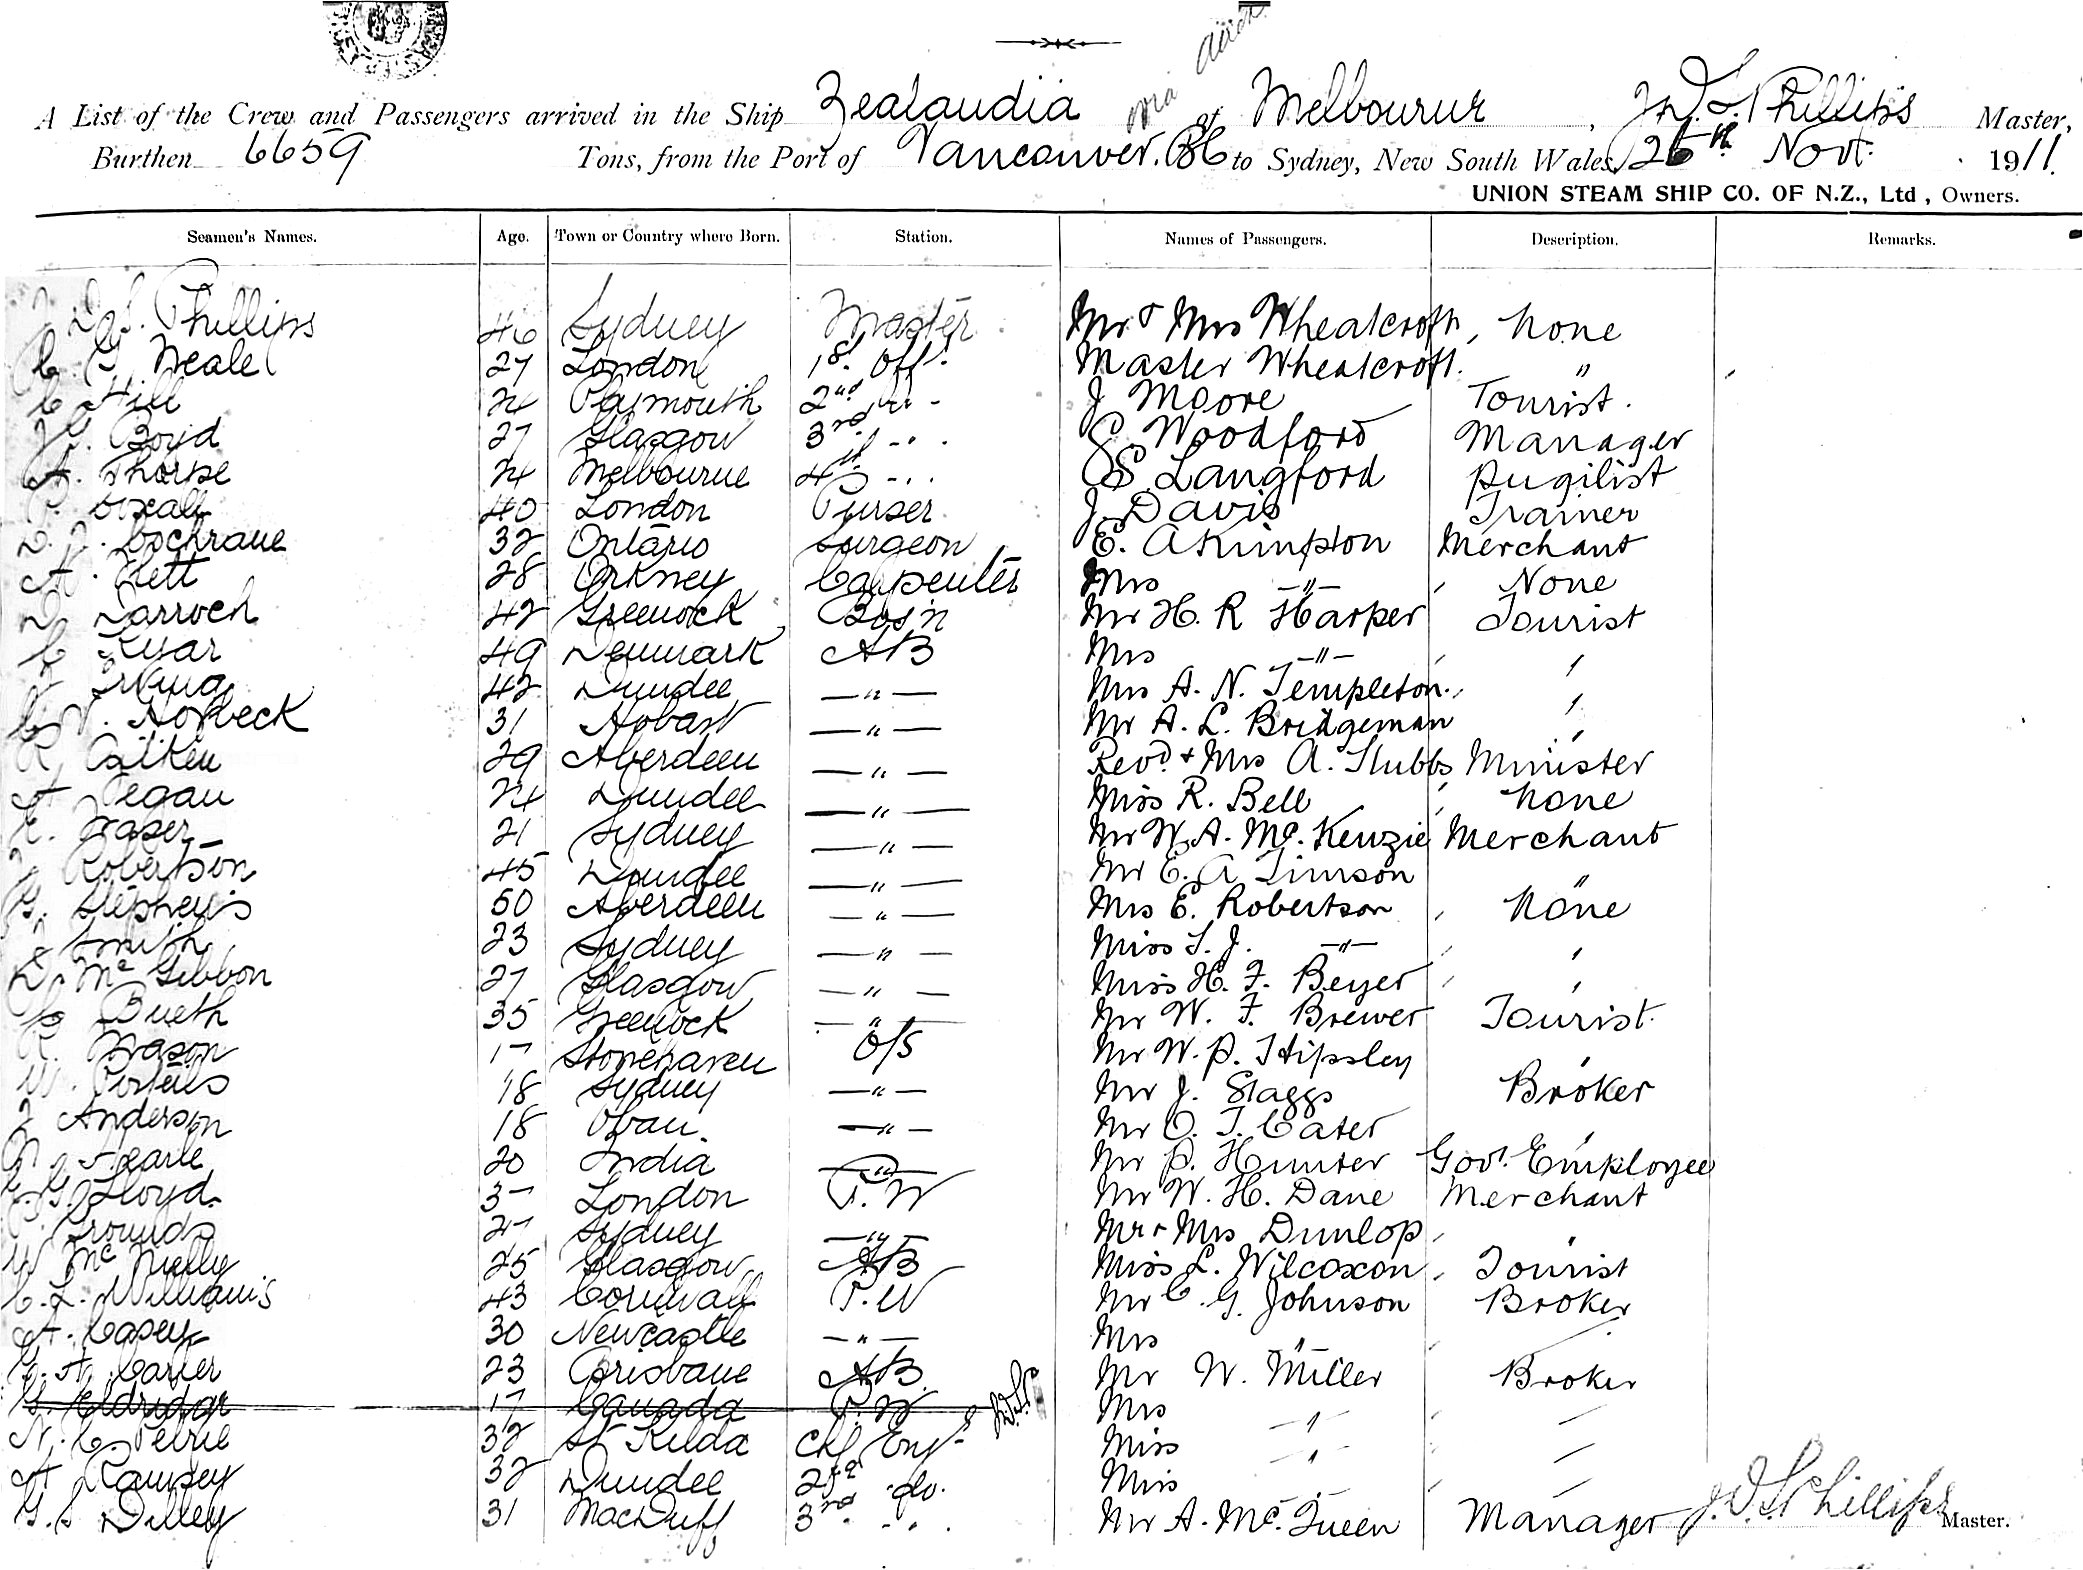 A List of the Crew and Passengers arrived in the Ship Zealandia via Auck of Melbourne, J. D. S. Phillips Master,
Burthen 6659 Tons, from the Port of Vancouver. BC to Sydney, New South Wales, 26th Nov. 1911.
UNION STEAM SHIP CO. OF N.Z., Ltd, Owners.
Seamen's Names. Age. Town or Country where Born. Station. Names of Passengers. Description. Remarks.
J. D. S. Phillips 46 Sydney Master Mr & Mrs Wheatcroft, None
G. Neale 27 London 1st. Off. Master Wheatcroft. "
C. Hill 24 Plymouth 2nd " - J Moore Tourist.
Boyd 27 Glasgow 3rd " - . S. Woodford Manager
A. Thorpe 24 Melbourne 4th - . . S Langford pugilist
Boxall 40 London Purser J. Davis Trainer
Cochrane 32 Ontario Surgeon E. Akimpton Merchant
A. Flett 28 Orkney Carpenter Mrs —"— None
D. Darroch 42 Greenock Bos'n Mr H. R Harper Tourist
49 Denmark AB Mrs —"— "
42 Dundee —"— Mrs A. N. Templeton. "
Horbeck 31 Hobart —"— Mr A. L. Bridgeman "
R. Aitken 29 Aberdeen —"— Revd. & Mrs A. Stubbs Minister
24 Dundee —"— Miss R. Bell None
21 Sydney —"— Mr W. A. Mc. Kenzie Merchant
Robertson 45 Dundee —"— Mr E. A Timson "
G. Stephens 50 Aberdeen —"— Mrs E. Robertson None
Smith 23 Sydney —"— Miss S. J. —"— "
D. Mc Gibbon 27 Glasgow —"— Miss H. F. Beyer "
35 Greenock —"— Mr W. F. Brewer Tourist.
R. Mason 17 Stonehaven O/S Mr W. P. Hipsley "
W. Porteus 18 Sydney —"— Mr J. Staggs Broker
J Anderson 18 Oban. —"— Mr O. T. Cater "
Searle 20 India —"— Mr P. Hunter Govt. Employee
Lloyd. 37 London P. W Mr W. H. Dane Merchant
Grounds 27 Sydney —"— Mr & Mrs Dunlop, "
W Mc Nully 25 Glasgow AB Miss L. Wilcoxon, Tourist
C. L. Williams 43 Cornwall P. W Mr C. G. Johnson Broker
A. Casey 30 Newcastle —"— Mrs " —
G. A. Carter 23 Brisbane AB. Mr W. Miller Broker
G. Eldridge 17 Canada P. W J.D.S.P. Mrs —"— —
N. C. Petrie 32 St Kilda Chf Engr Miss " —
A Ramsey 32 Dundee 2nd do. Miss " —
G. S Dilley 31 MacDuff 3rd - " . Mr A. Mc. Queen Manager
J. D. S. Phillips Master.